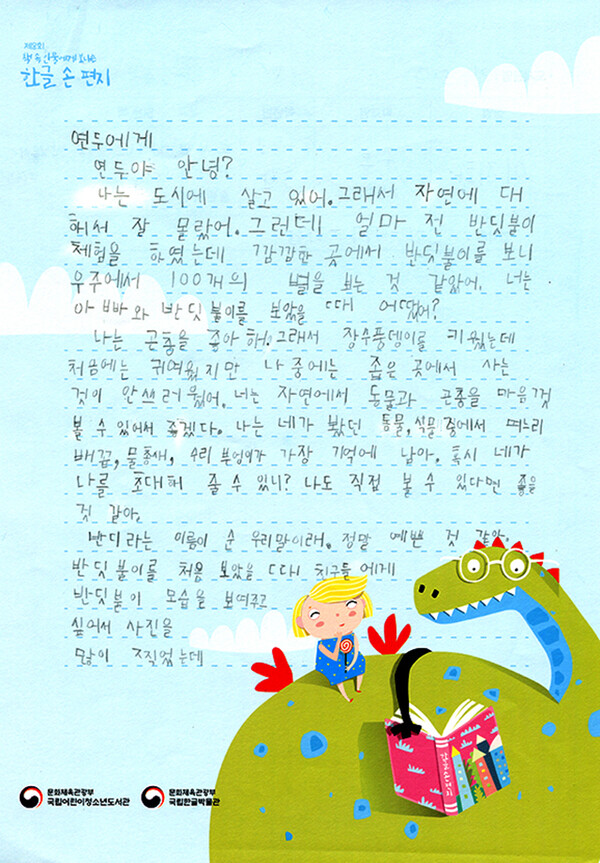 제8회
책 속 인물에게 보내는
한글 손 편지
연두에게
연두야 안녕?
나는 도시에 살고 있어. 그래서 자연에 대
해서 잘 몰랐어. 그런데 얼마 전 반딧불이
체험을 하였는데 깜깜한 곳에서 반딧불이를 보니
우주에서 100개의 별을 보는 것 같았어. 너는
아빠와 반딧불이를 보았을 때 어땠어?
나는 곤충을 좋아해. 그래서 장수풍뎅이를 키웠는데
처음에는 귀여웠지만 나중에는 좁은 곳에서 사는
것이 안쓰러웠어. 너는 자연에서 동물과 곤충을 마음껏
볼 수 있어서 좋겠다. 나는 네가 봤던 동물, 식물 중에서 며느리
배꼽, 물총새, 수리 부엉이가 가장 기억에 남아. 혹시 네가
나를 초대해 줄 수 있니? 나도 직접 볼 수 있다면 좋을
것 같아.
반디라는 이름이 순 우리말이래. 정말 예쁜 것 같아.
반딧불이를 처음 보았을 때 친구들에게
반딧불이 모습을 보여주고
싶어서 사진을
많이 찍었는데
한글 손 편지
문화체육관광부
국립어린이청소년도서관
문화체육관광부
국립한글박물관